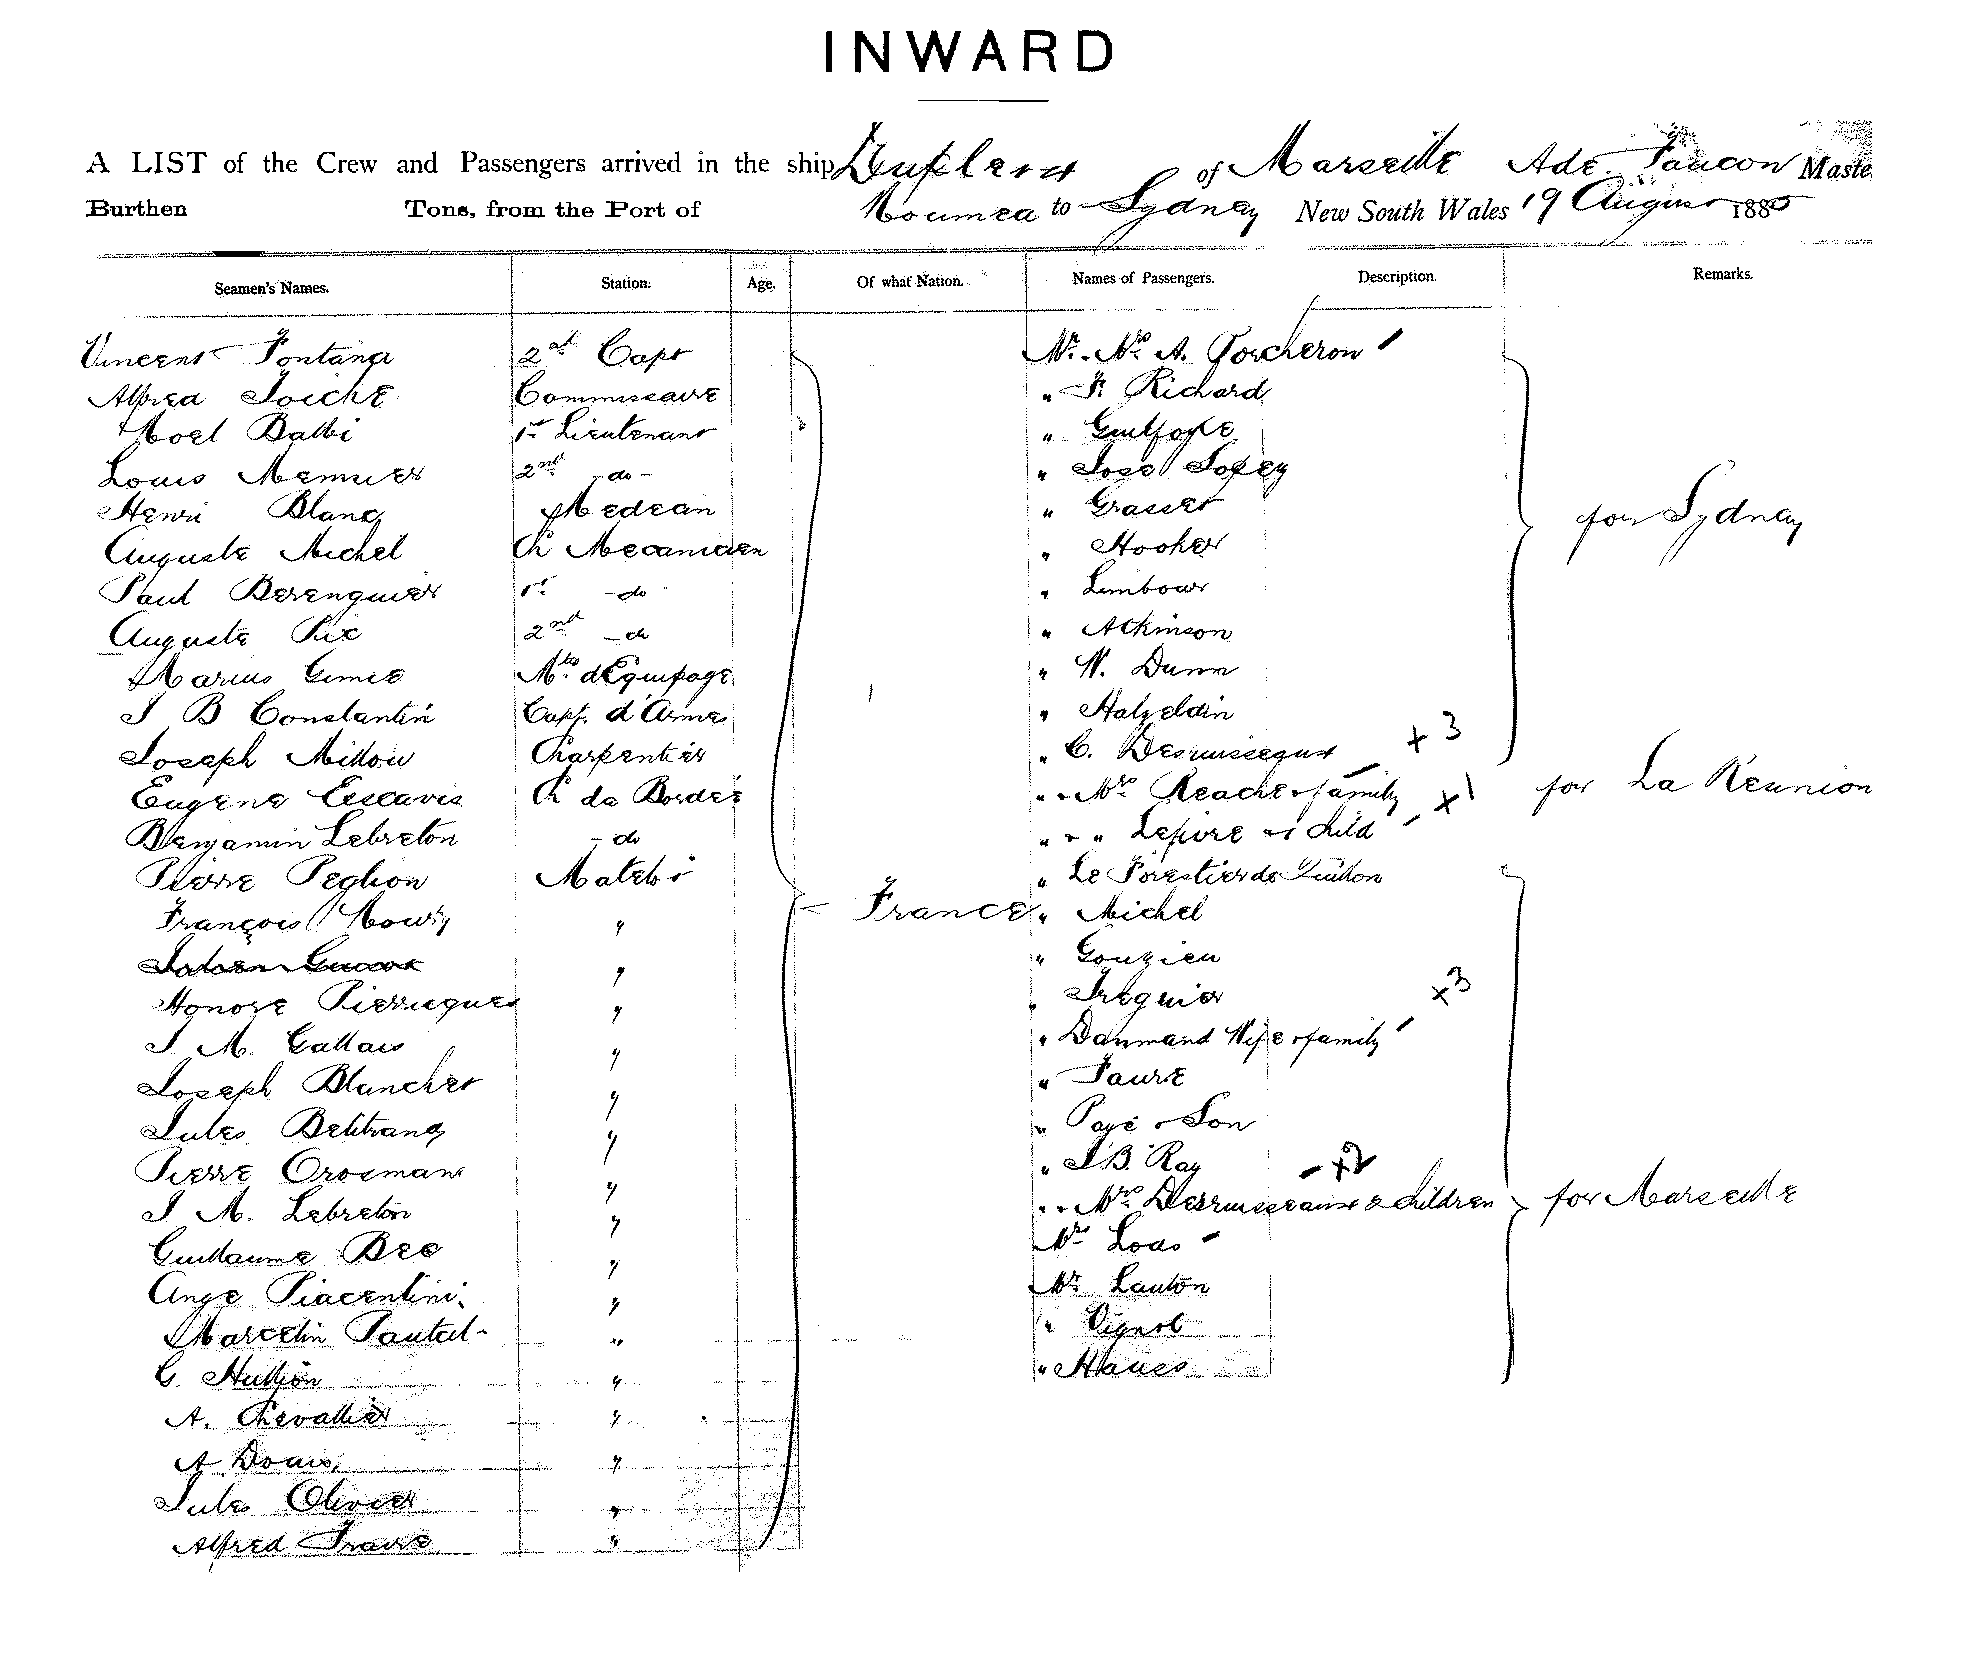 INWARD
A LIST of the Crew and Passengers arrived in the ship Dupleix of Marseille Ade Faucon Maste
Burthen Tons, from the Port of Noumea to Sydney New South Wales 19 August 188
Seamen's Names. Station. Age. Of what Nation. Names of Passengers. Description. Remarks.
Vincent Fontana 2nd Capt Mr. Mrs A. Porcheron
Alfred Commissaire " F. Richard
Noel Balbi 1st Lieutenant " Guilfoyle
Louis Meunier 2nd -do- " José
Henri Blanc Medean " Grasset
Auguste Michel Ch Mecanicien " Hooker
Paul Berenguier 1st -do " Limbour
Auguste Pix 2nd -do " Atkinson
Marius Gimie Mtre d'Equipage " W. Dunn
J B Constantin Capt. d'Armes " Hatzeldin
Joseph Millou Charpentier " C. Desruisseaux + 3
Eugene Escavis Ch de Bordée " " Mrs Reache & family x 1
Benjamin Lebreton - do " " " Lepire & child
Pierre Peglion Matelot " Le Forestier de
François Noury " " Michel
" " Gouzien
Honore Pierrugues " " Treguier x3
J. M. Gallais " " Danmand Wife & family
Joseph Blanchet " " Faure
Jules Beltrand " " Payé & Son
Pierre Orosmane " " J.B. Ray
J M. Lebreton " " " Mrs Desruisseaux & children
Guillaume Bee " Mrs Loas
Ange Piacentini " Mr Lauton
Marcelin Pautel " " Vignol
C. Hullion " " Haues
A. Chevallier "
A Douis "
Jules Olivier "
Alfred "
France
for Sydney
for La Reunion
for Marseille